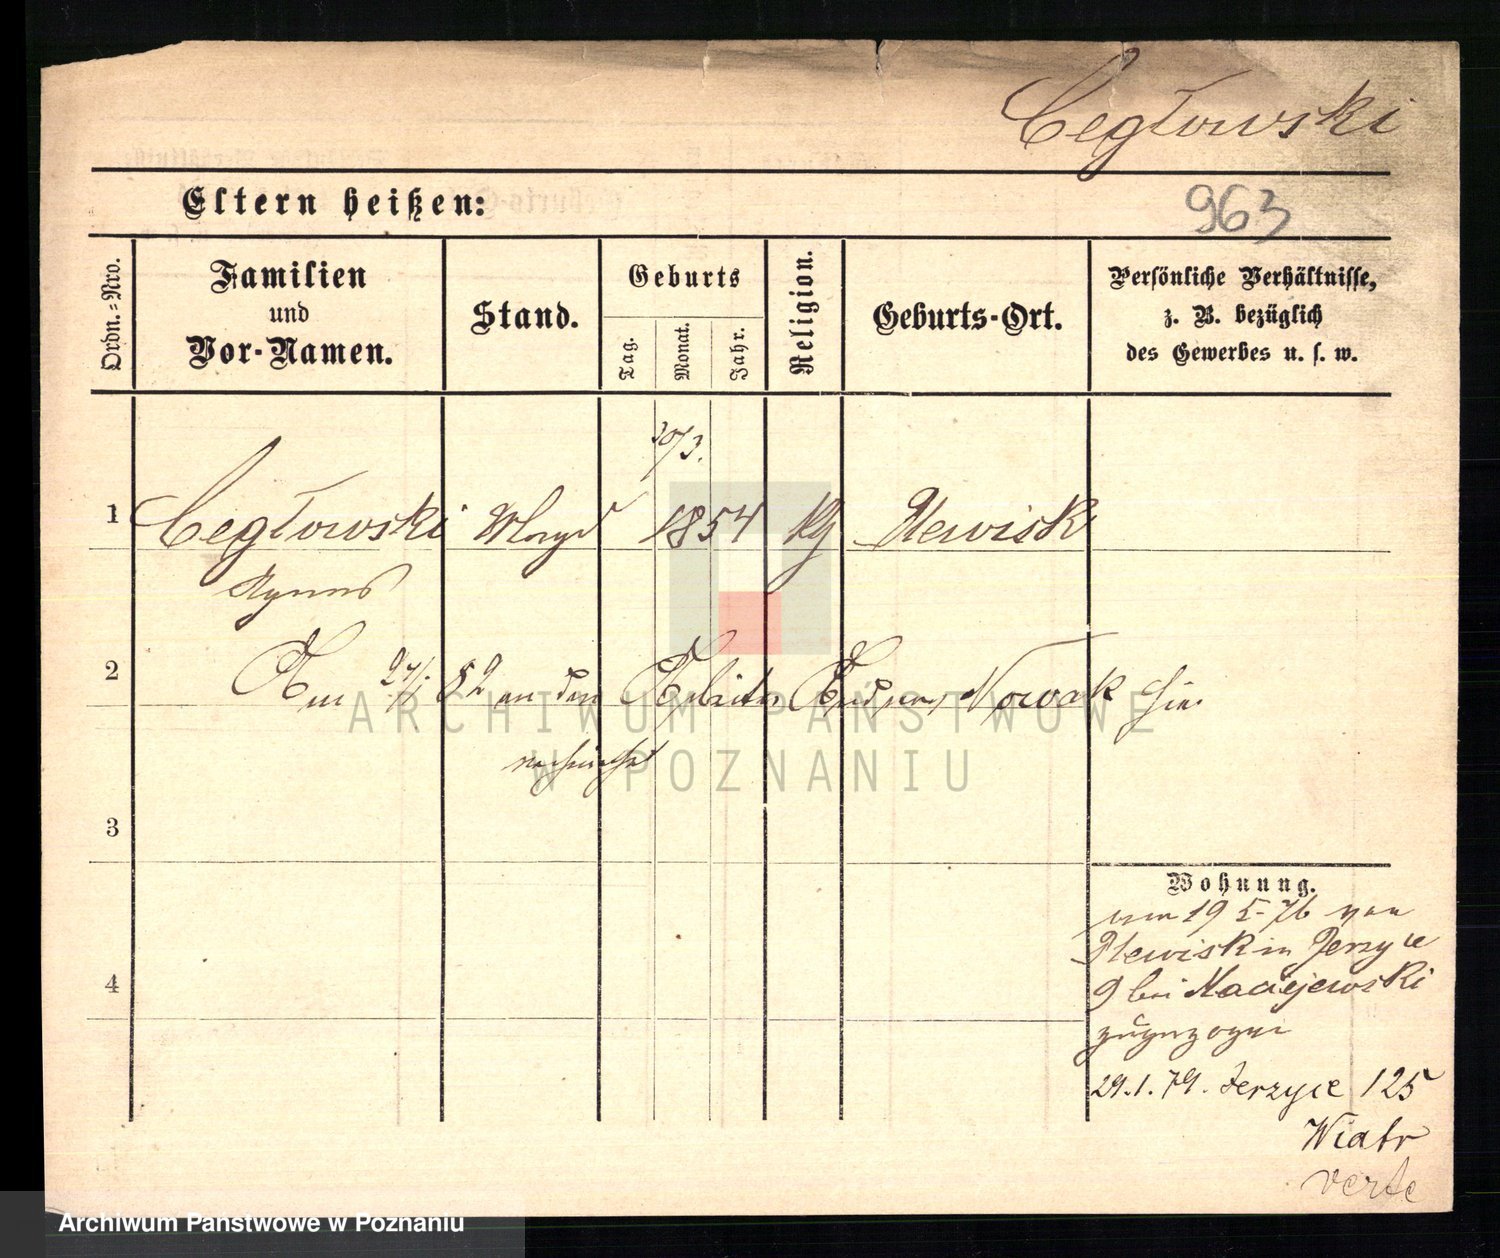 Cegłowski
963
Eltern heißen:
Ordn.-Nro.
Familien
und
Vor-Namen.
Stand.
Geburts
Tag.
Monat.
Jahr.
Religion.
Geburts-Ort.
Persönliche Verhältnisse,
z. B. bezüglich
des Gewerbes u. s. w.
30/3.
1 Cegłowski Magd 1854 kg Plewisk
Agnes
2 Am 27/1 82 an den Arbeiter Nowak hier
verheirathet
3
4
Wohnung.
am 19 5 76 von
Plewisk in Jerzyce
9 bei Maciejewski
zugezogen
29.1.79. Jerzyce 125
Wiatr
verte
ARCHIWUM PAŃSTWOWE
W POZNANIU
Archiwum Państwowe w Poznaniu